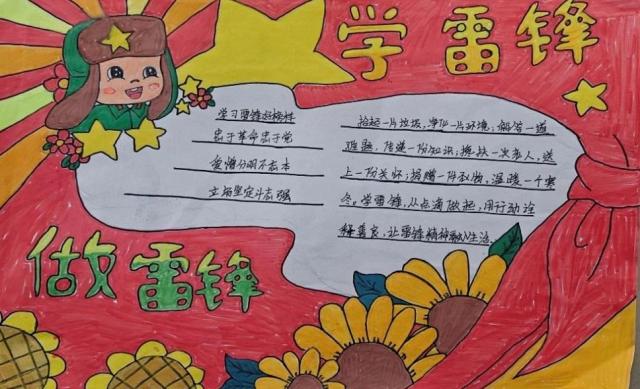 学雷锋
学习雷锋好榜样
忠于革命忠于党
爱憎分明不忘本
立场坚定斗志强
拾起一片垃圾,净化一片环境;解答一道
难题,传递一份知识;搀扶一次老人,送
上一份关怀;捐赠一份衣物,温暖一个寒
冬。学雷锋,从点滴做起,用行动诠
释善良,让雷锋精神融入生活
做雷锋